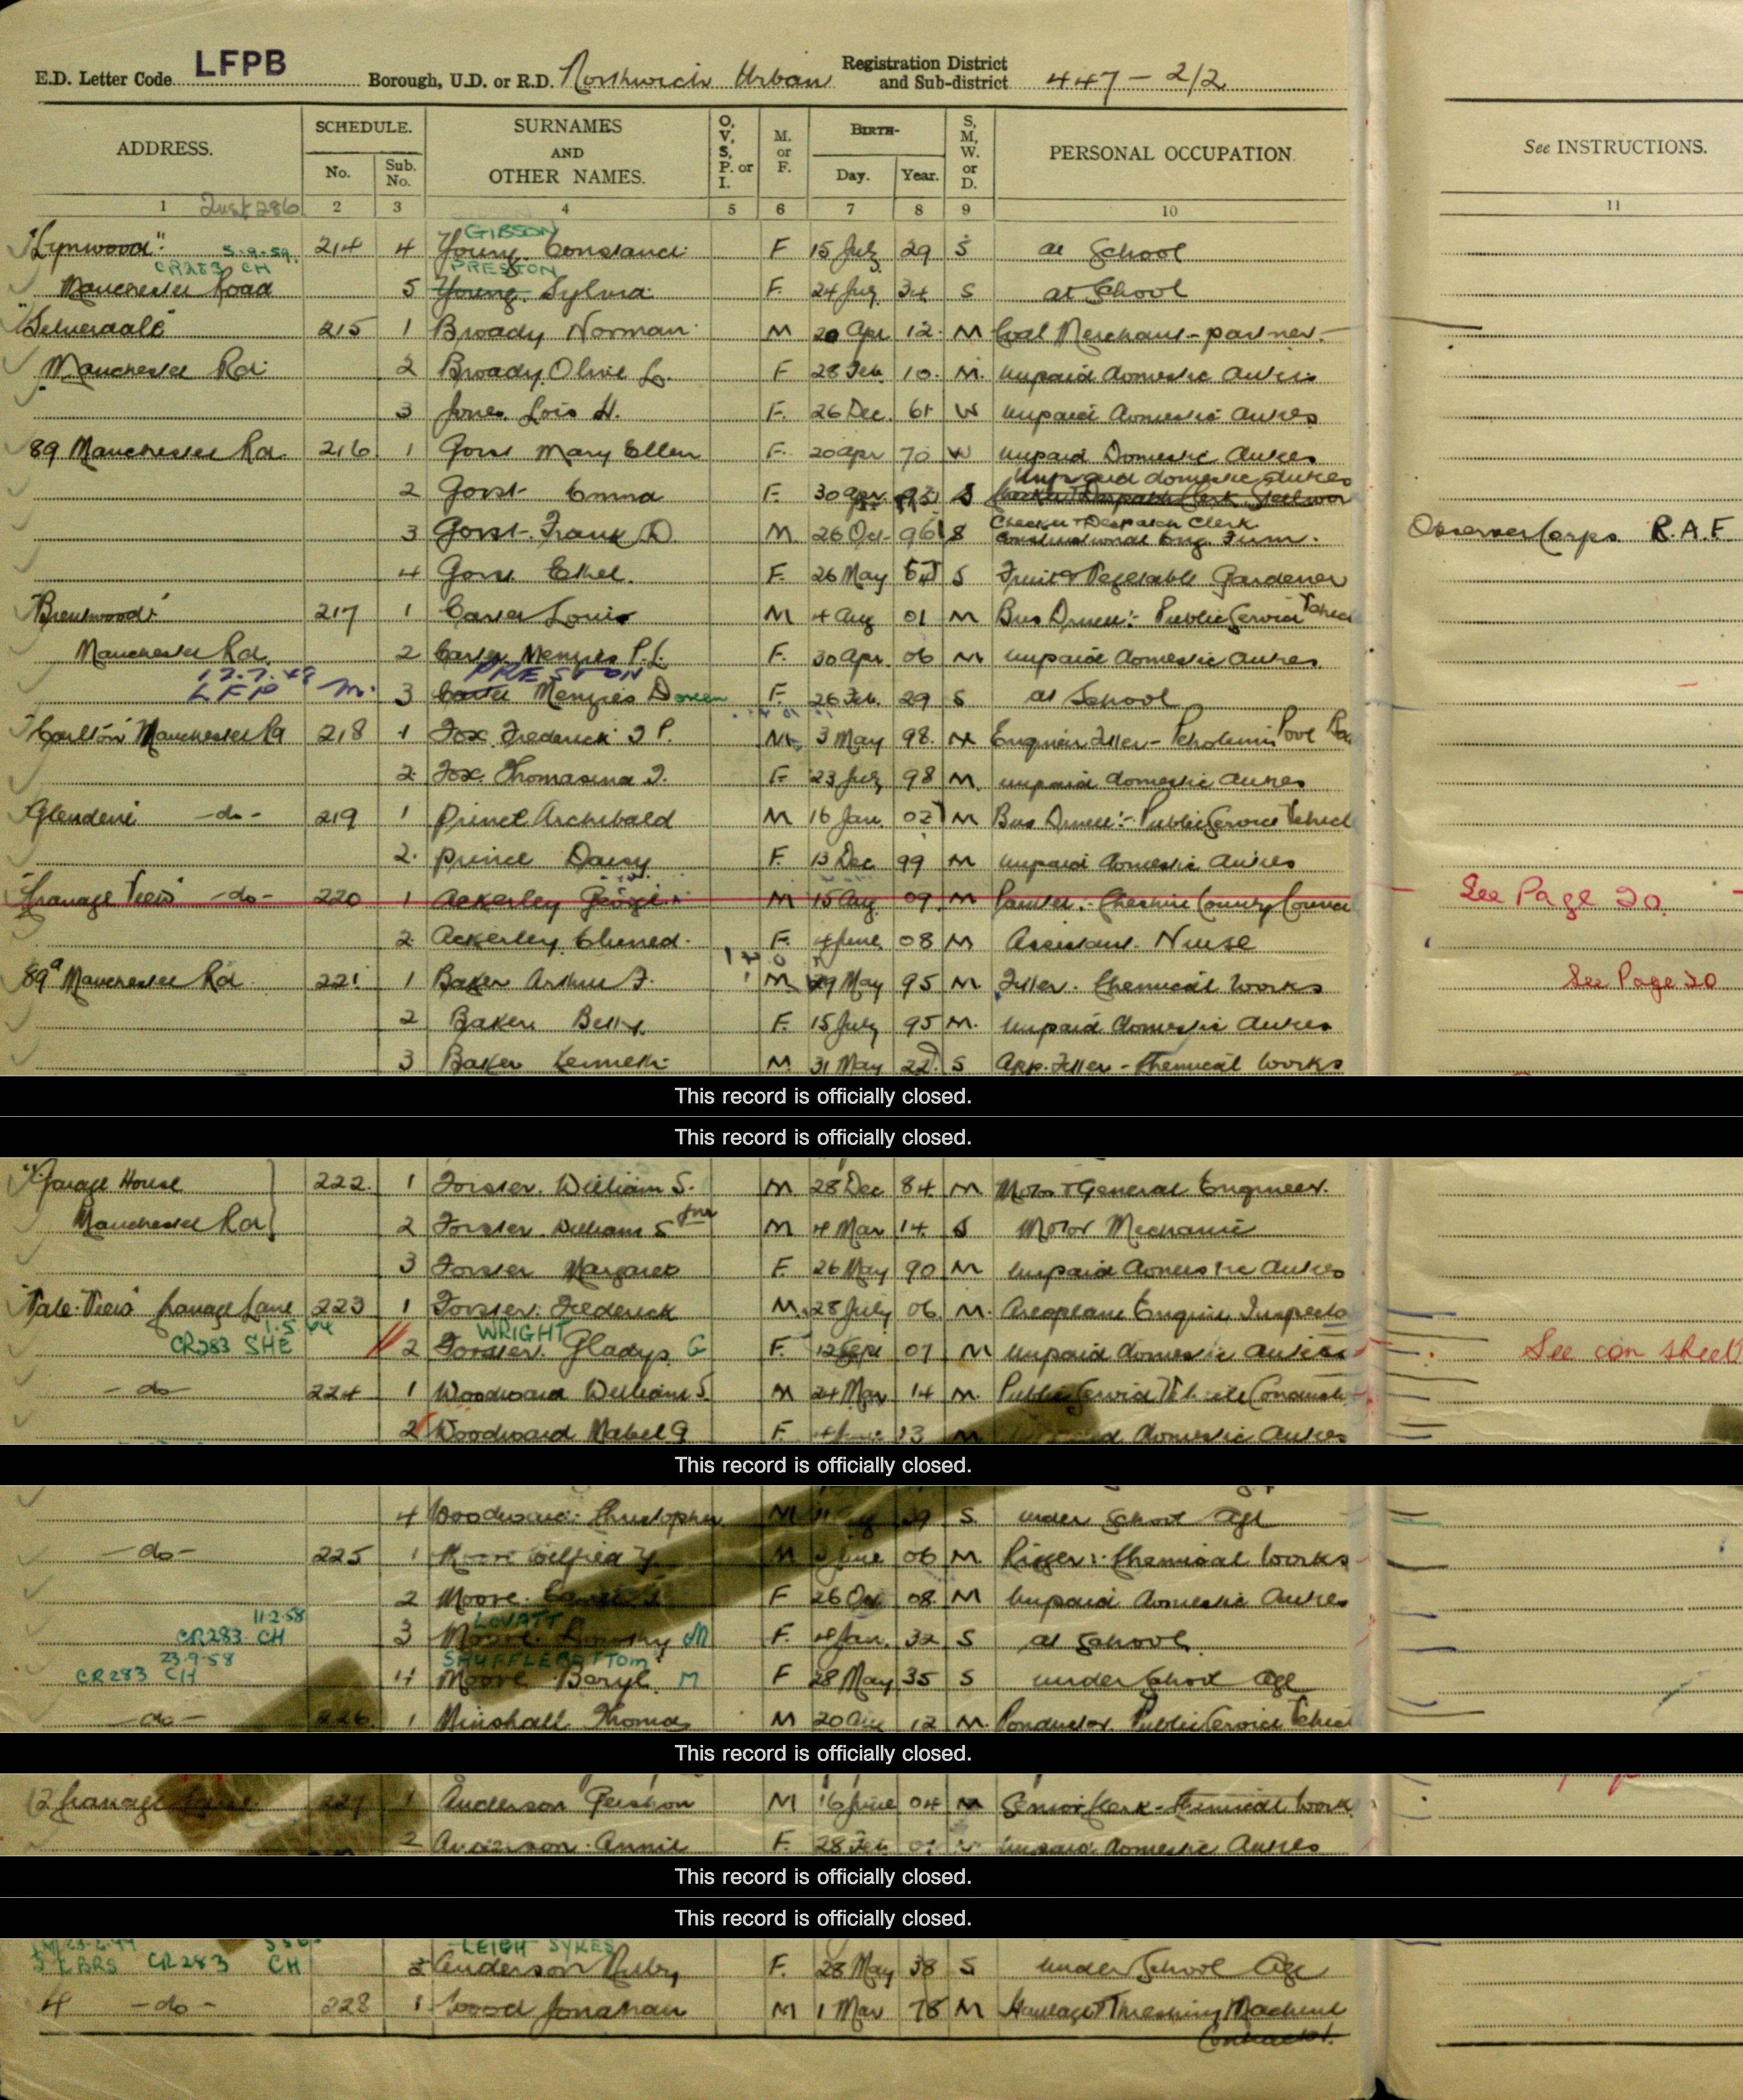 E.D. Letter Code LFPB Borough, U.D. or R.D. Northwich Urban Registration District and Sub-district 447 - 2/2
ADDRESS. SCHEDULE. No. Sub. No. SURNAMES AND OTHER NAMES. O, V, S, P. or I. M. or F. BIRTH- Day. Year. S, M, W. or D. PERSONAL OCCUPATION. See INSTRUCTIONS.
1 2 3 4 5 6 7 8 9 10 11
GIBSON
"Lynwood" 5.9.59. 214 4 Young Constance F 15 July 29 S at School
CR283 CH PRESTON
Manchester Road 5 Young Sylvia F 24 July 34 S at School
"Silverdale" 215 1 Broady Norman M 20 Apr 12 M Coal Merchant - partner
Manchester Rd 2 Broady Olive L. F 28 Feb 10 M. unpaid domestic duties
3 Jones Lois H. F. 26 Dec. 61 W unpaid domestic duties
89 Manchester Rd. 216 1 Gorst Mary Ellen F. 20 Apr 70 W unpaid Domestic duties
unpaid domestic duties
2 Gorst Emma F. 30 Apr 93 S
Checker & Despatch Clerk
3 Gorst Frank D. M. 26 Oct 96 S Constructional Eng. Firm. Observer Corps R.A.F.
4 Gorst Ethel. F. 26 May S Fruit & Vegetable Gardener
"Brentwood" 217 1 Carter Louis M 4 Aug 01 M Bus Driver:- Public Service Vehicle
Manchester Rd. 2 Carter Menzies P.L. F. 30 Apr. 06 M unpaid domestic duties
12.7.48 PRESTON
LFP M. 3 Carter Menzies Doreen F. 26 Feb. 29 S at School
"Carlton" Manchester Rd 218 1 Fox Frederick J P. M 3 May 98. M Engineer Fitter -
2 Fox Thomasina J. F 23 July 98 M. unpaid domestic duties
Glendene - do - 219 1 Prince Archibald M 16 Jan. 02 M Bus Driver:- Public Service Vehicle
2. Prince Daisy F. 13 Dec 99 M unpaid domestic duties
"Granage View" - do - 220 1 Ackerley George M 15 Aug 09 M Painter:- Cheshire County Council See Page 20.
2 Ackerley Eluned F. 4 June 08 M Assistant Nurse
89a Manchester Rd 221 1 Baker Arthur F. M 29 May 95 M. Fitter. Chemical Works See Page 20
2 Baker Betty. F. 15 July 95 M. unpaid domestic duties
3 Baker Kenneth M 31 May 22 S App. Fitter - Chemical Works
This record is officially closed.
This record is officially closed.
"Garage House 222. 1 Forster. William S. M 28 Dec 84 M Motor & General Engineer.
Manchester Rd 2 Forster. William S jnr M 4 Mar 14. S Motor Mechanic
3 Forster Margaret F. 26 May 90 M unpaid domestic duties
"Vale View" Granage Lane 223 1 Forster. Frederick M. 28 July 06 M. Aeroplane Engine Inspector
1.5.64 WRIGHT
CR283 SHE 2 Forster. Gladys G F. 12 Sept 07 M unpaid domestic duties See con sheet
- do - 224 1 Woodward William S. M 24 Mar 14 M. Public Service Vehicle Conductor
2 Woodward Mabel G F. 4 June 13 M domestic duties
This record is officially closed.
4 Woodward Christopher M 11 39 S. under School age
- do - 225 1 Moore Wilfred M June 06 M. Rigger:- Chemical Works
2 Moore F 26 Oct 08. M unpaid domestic duties
11.2.58 LOVATT
CR283 CH 3 Moore Dorothy M F. Jan. 32 S at School.
23.9.58 SHUFFLEBOTTOM
CR283 CH 4 Moore Beryl M F 28 May 35 S under School age
- do - 226 1 Minshall Thomas M 20 Aug 12 M. Conductor Public Service Vehicle
This record is officially closed.
2 Granage Lane 227 1 Anderson Gershon M 16 June 04 M Senior Clerk - Chemical Works
2 Anderson Annie F. 28 Feb unpaid domestic duties
This record is officially closed.
This record is officially closed.
LEIGH SYKES
CR283 CH 3 Anderson Ruby F. 28 May 38 S under School Age
4 - do - 228 1 Wood Jonathan M 1 Mar 78 M Haulage & Threshing Machine
Contractor.